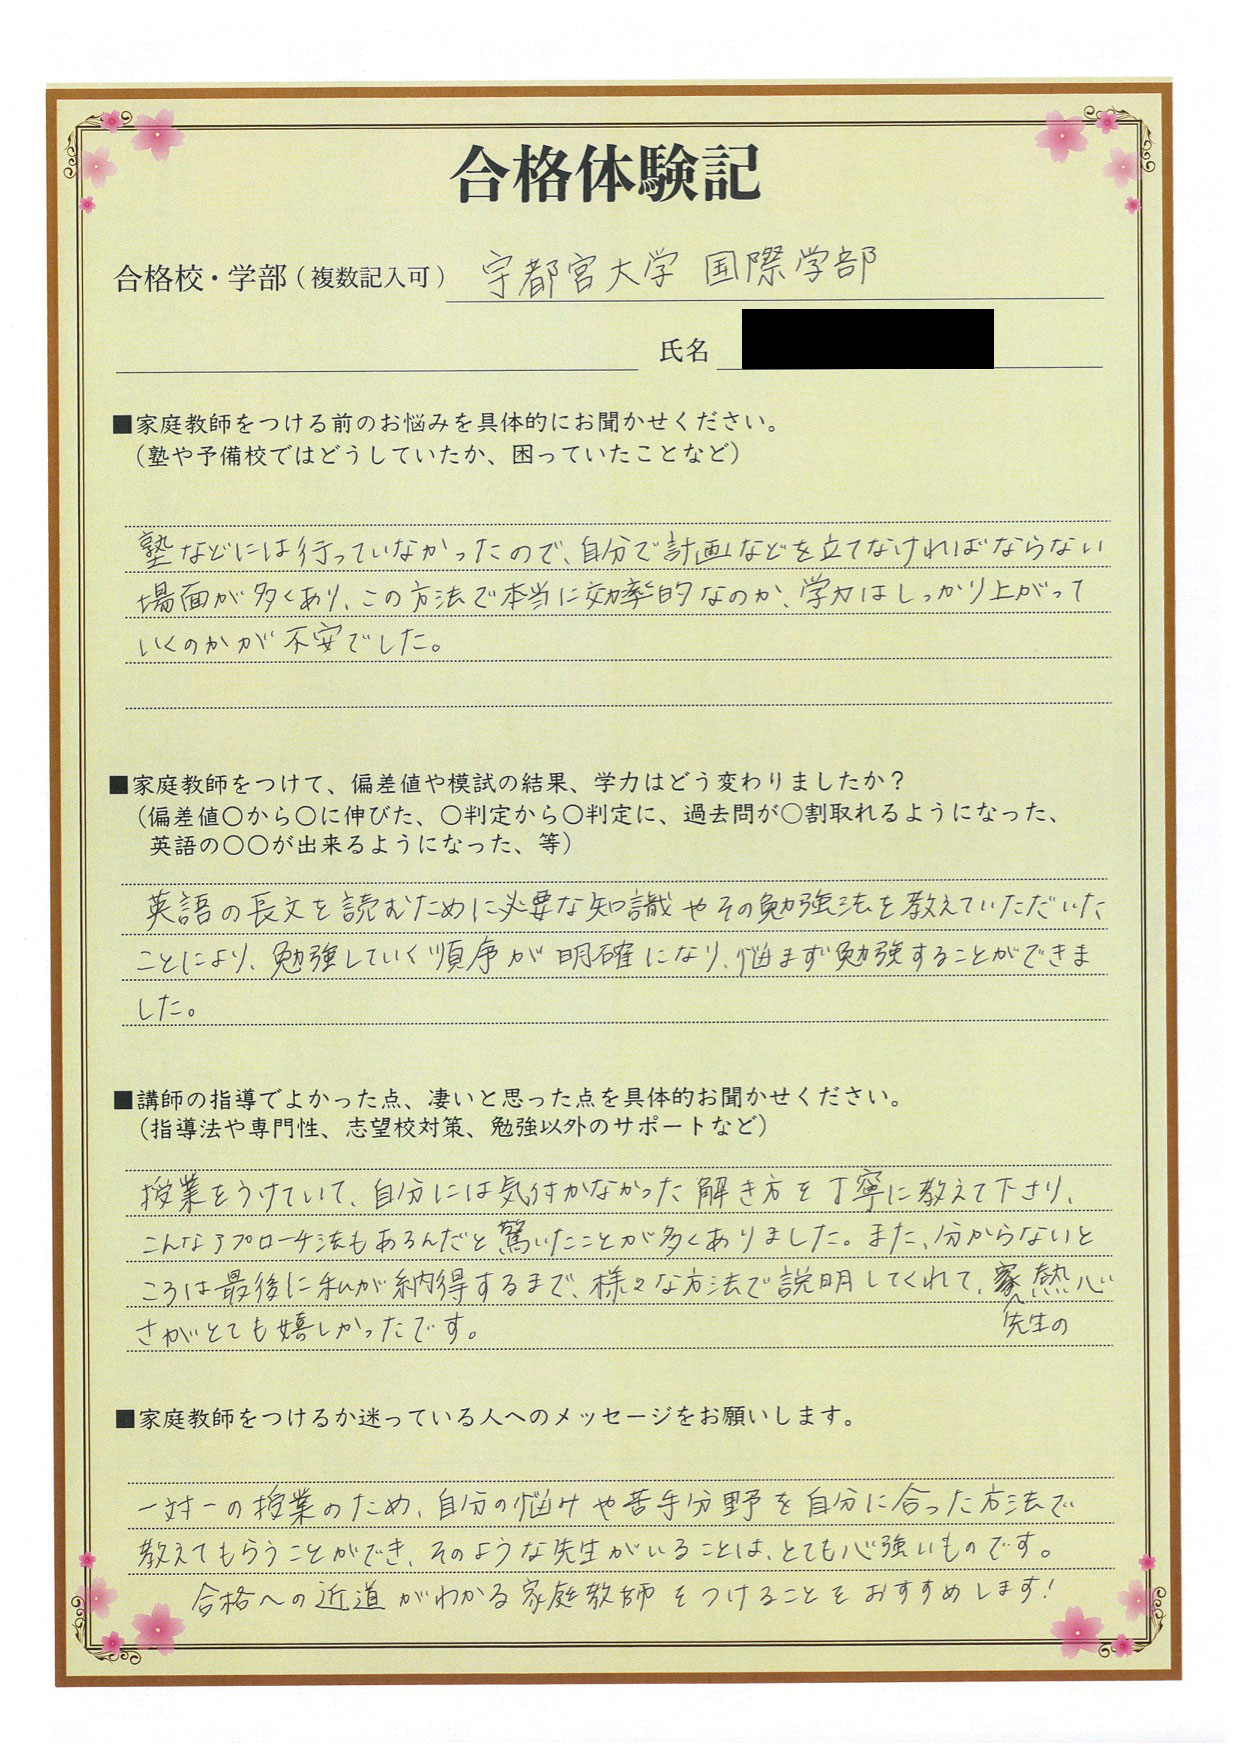 合格体験記
合格校・学部（複数記入可） 宇都宮大学 国際学部
氏名
■家庭教師をつける前のお悩みを具体的にお聞かせください。
（塾や予備校ではどうしていたか、困っていたことなど）
塾などには行っていなかったので、自分で計画などを立てなければならない
場面が多くあり、この方法で本当に効率的なのか、学力はしっかり上がって
いくのかが不安でした。
■家庭教師をつけて、偏差値や模試の結果、学力はどう変わりましたか？
（偏差値〇から〇に伸びた、〇判定から〇判定に、過去問が〇割取れるようになった、
英語の〇〇が出来るようになった、等）
英語の長文を読むために必要な知識やその勉強法を教えていただいた
ことにより、勉強していく順序が明確になり、悩まず勉強することができま
した。
■講師の指導でよかった点、凄いと思った点を具体的お聞かせください。
（指導法や専門性、志望校対策、勉強以外のサポートなど）
授業をうけていて、自分には気付かなかった解き方を丁寧に教えて下さり、
こんなアプローチ法もあるんだと驚いたことが多くありました。また、分からないと
ころは最後に私が納得するまで、様々な方法で説明してくれて、先生の熱心
さがとても嬉しかったです。
■家庭教師をつけるか迷っている人へのメッセージをお願いします。
一対一の授業のため、自分の悩みや苦手分野を自分に合った方法で
教えてもらうことができ、そのような先生がいることは、とても心強いものです。
合格への近道がわかる家庭教師をつけることをおすすめします！